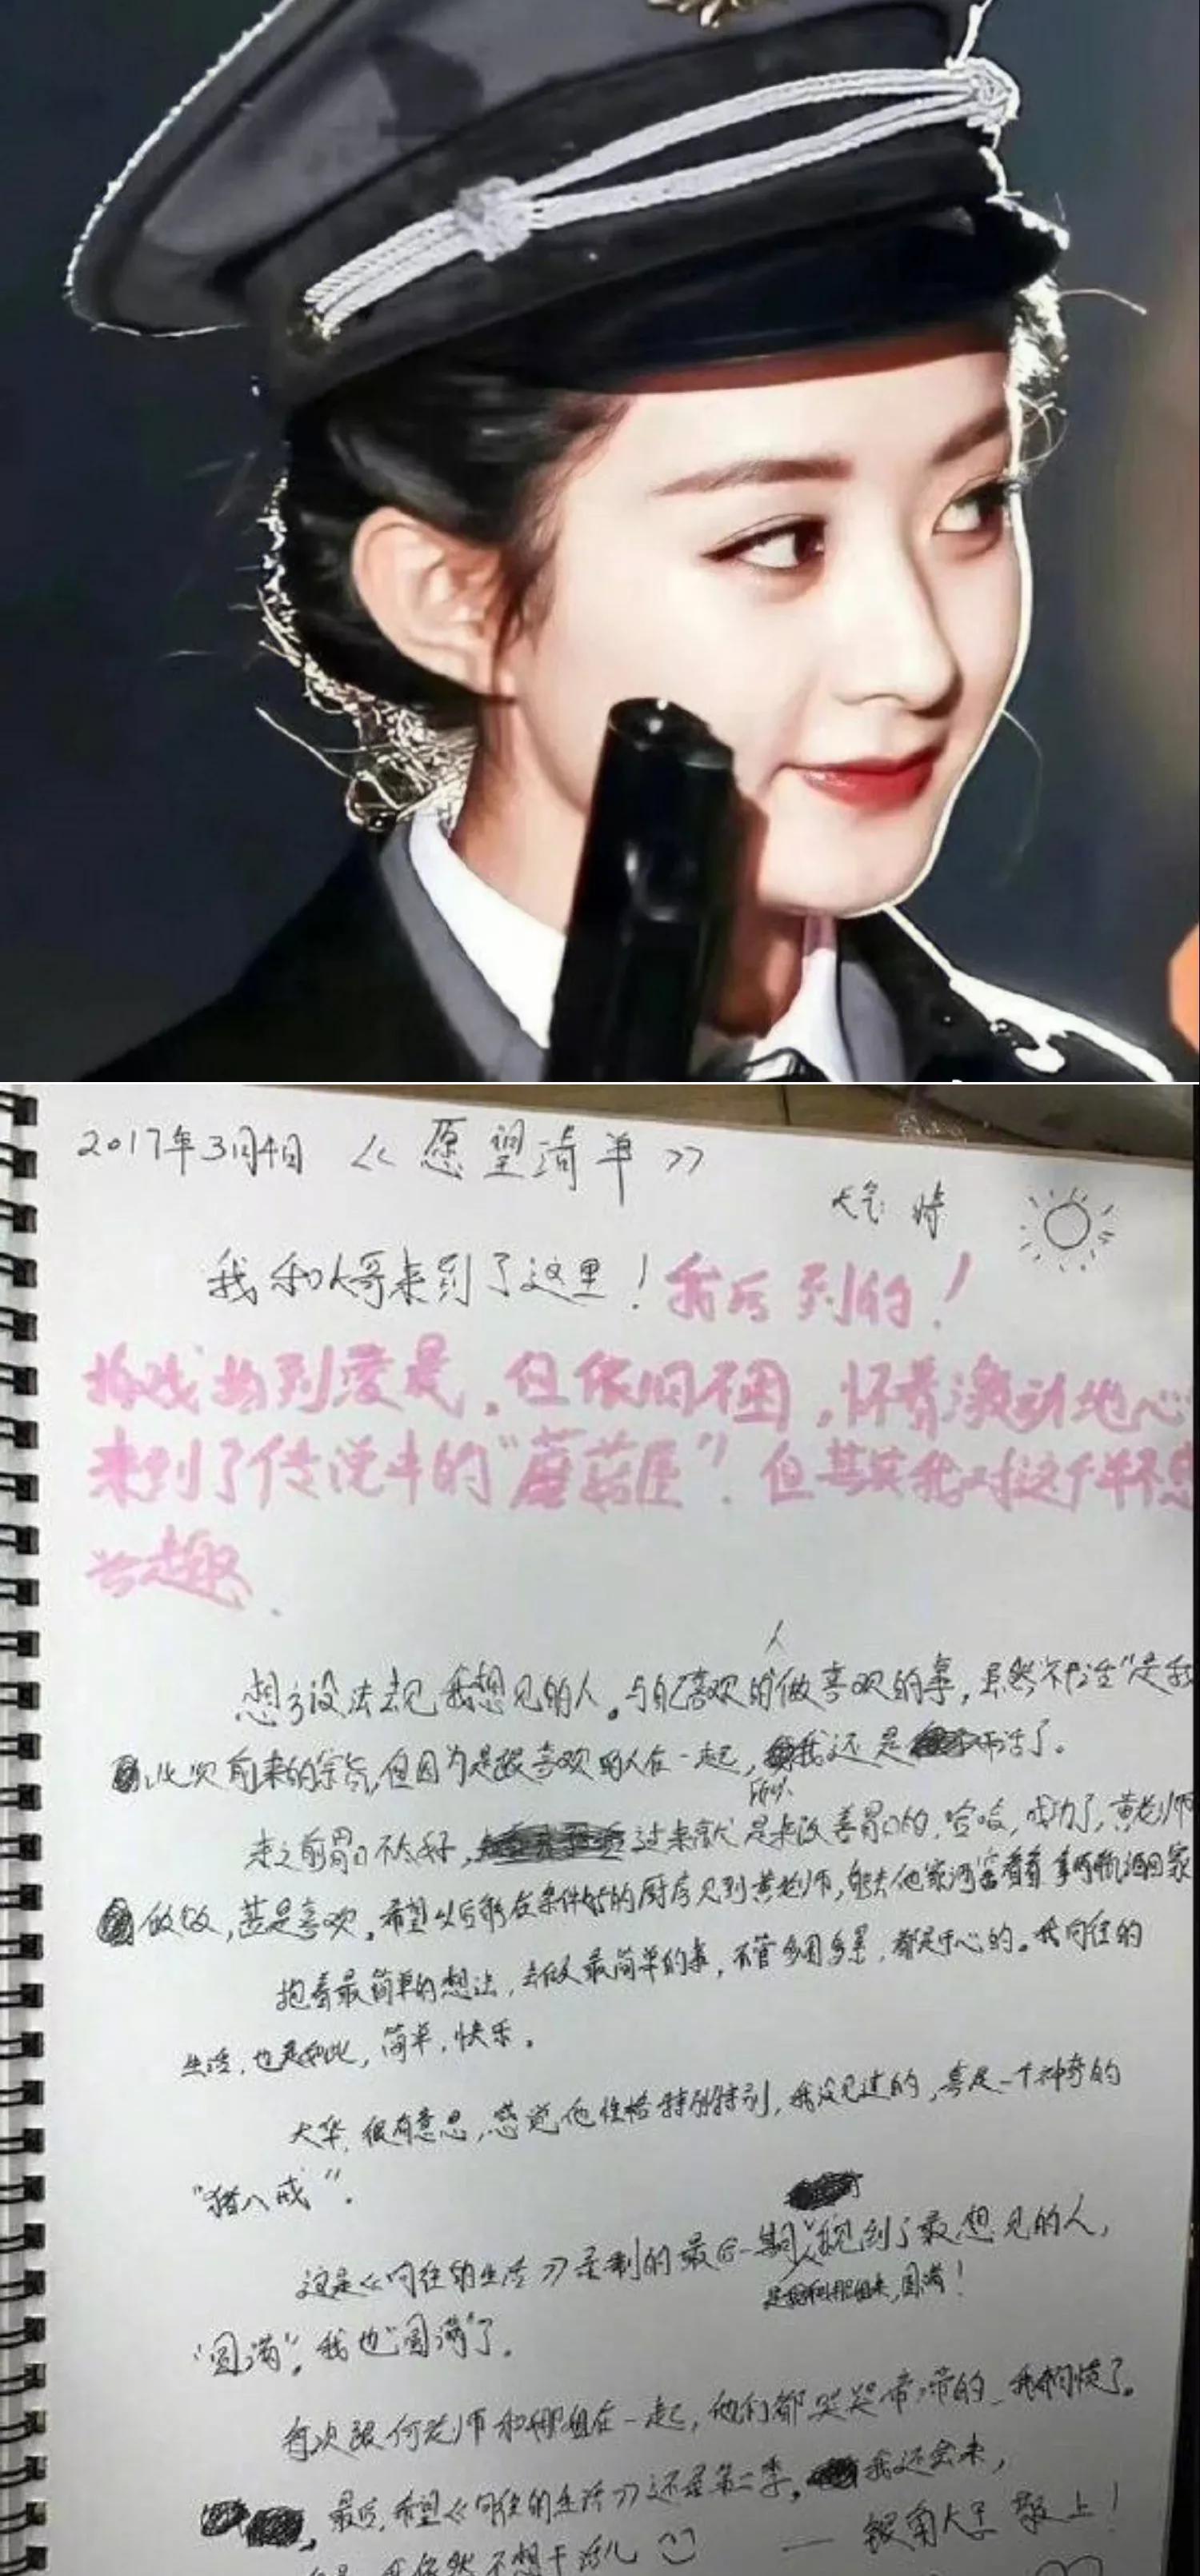 2017年3月4日 《愿望清单》
天气 晴
我和大哥来到了这里！我后到的！
拍戏拍到凌晨，但依旧不困，怀着激动地心
来到了传说中的“蘑菇屋”．但其实我对这个并不感
兴趣．
人
想方设法去见我想见的人。与自己喜欢的做喜欢的事，虽然“不干活”是我
此次前来的宗旨，但因为是跟喜欢的人在一起，我还是干活了。
所以
来之前胃口不太好，过来就是来改善胃口的，哈哈，成功了，黄老师
做饭，甚是喜欢，希望以后能在条件好的厨房见到黄老师，能去他家酒窖看看拿两瓶酒回家
抱着最简单的想法，去做最简单的事，不管多困多累，都是开心的。我向往的
生活，也是如此，简单，快乐。
大华，很有意思，感觉他性格特别特别，我没见过的，真是一个神奇的
“猪八戒”．
这是《向往的生活》录制的最后一期，我见到了最想见的人，
圆满！
“圆满”，我也“圆满”了．
每次跟何老师和娜姐在一起，他们都哭哭啼啼的，我都习惯了。
最后，希望《向往的生活》还是第二季，我还会来，
依然不想干活儿
—— 银角大王 敬上！